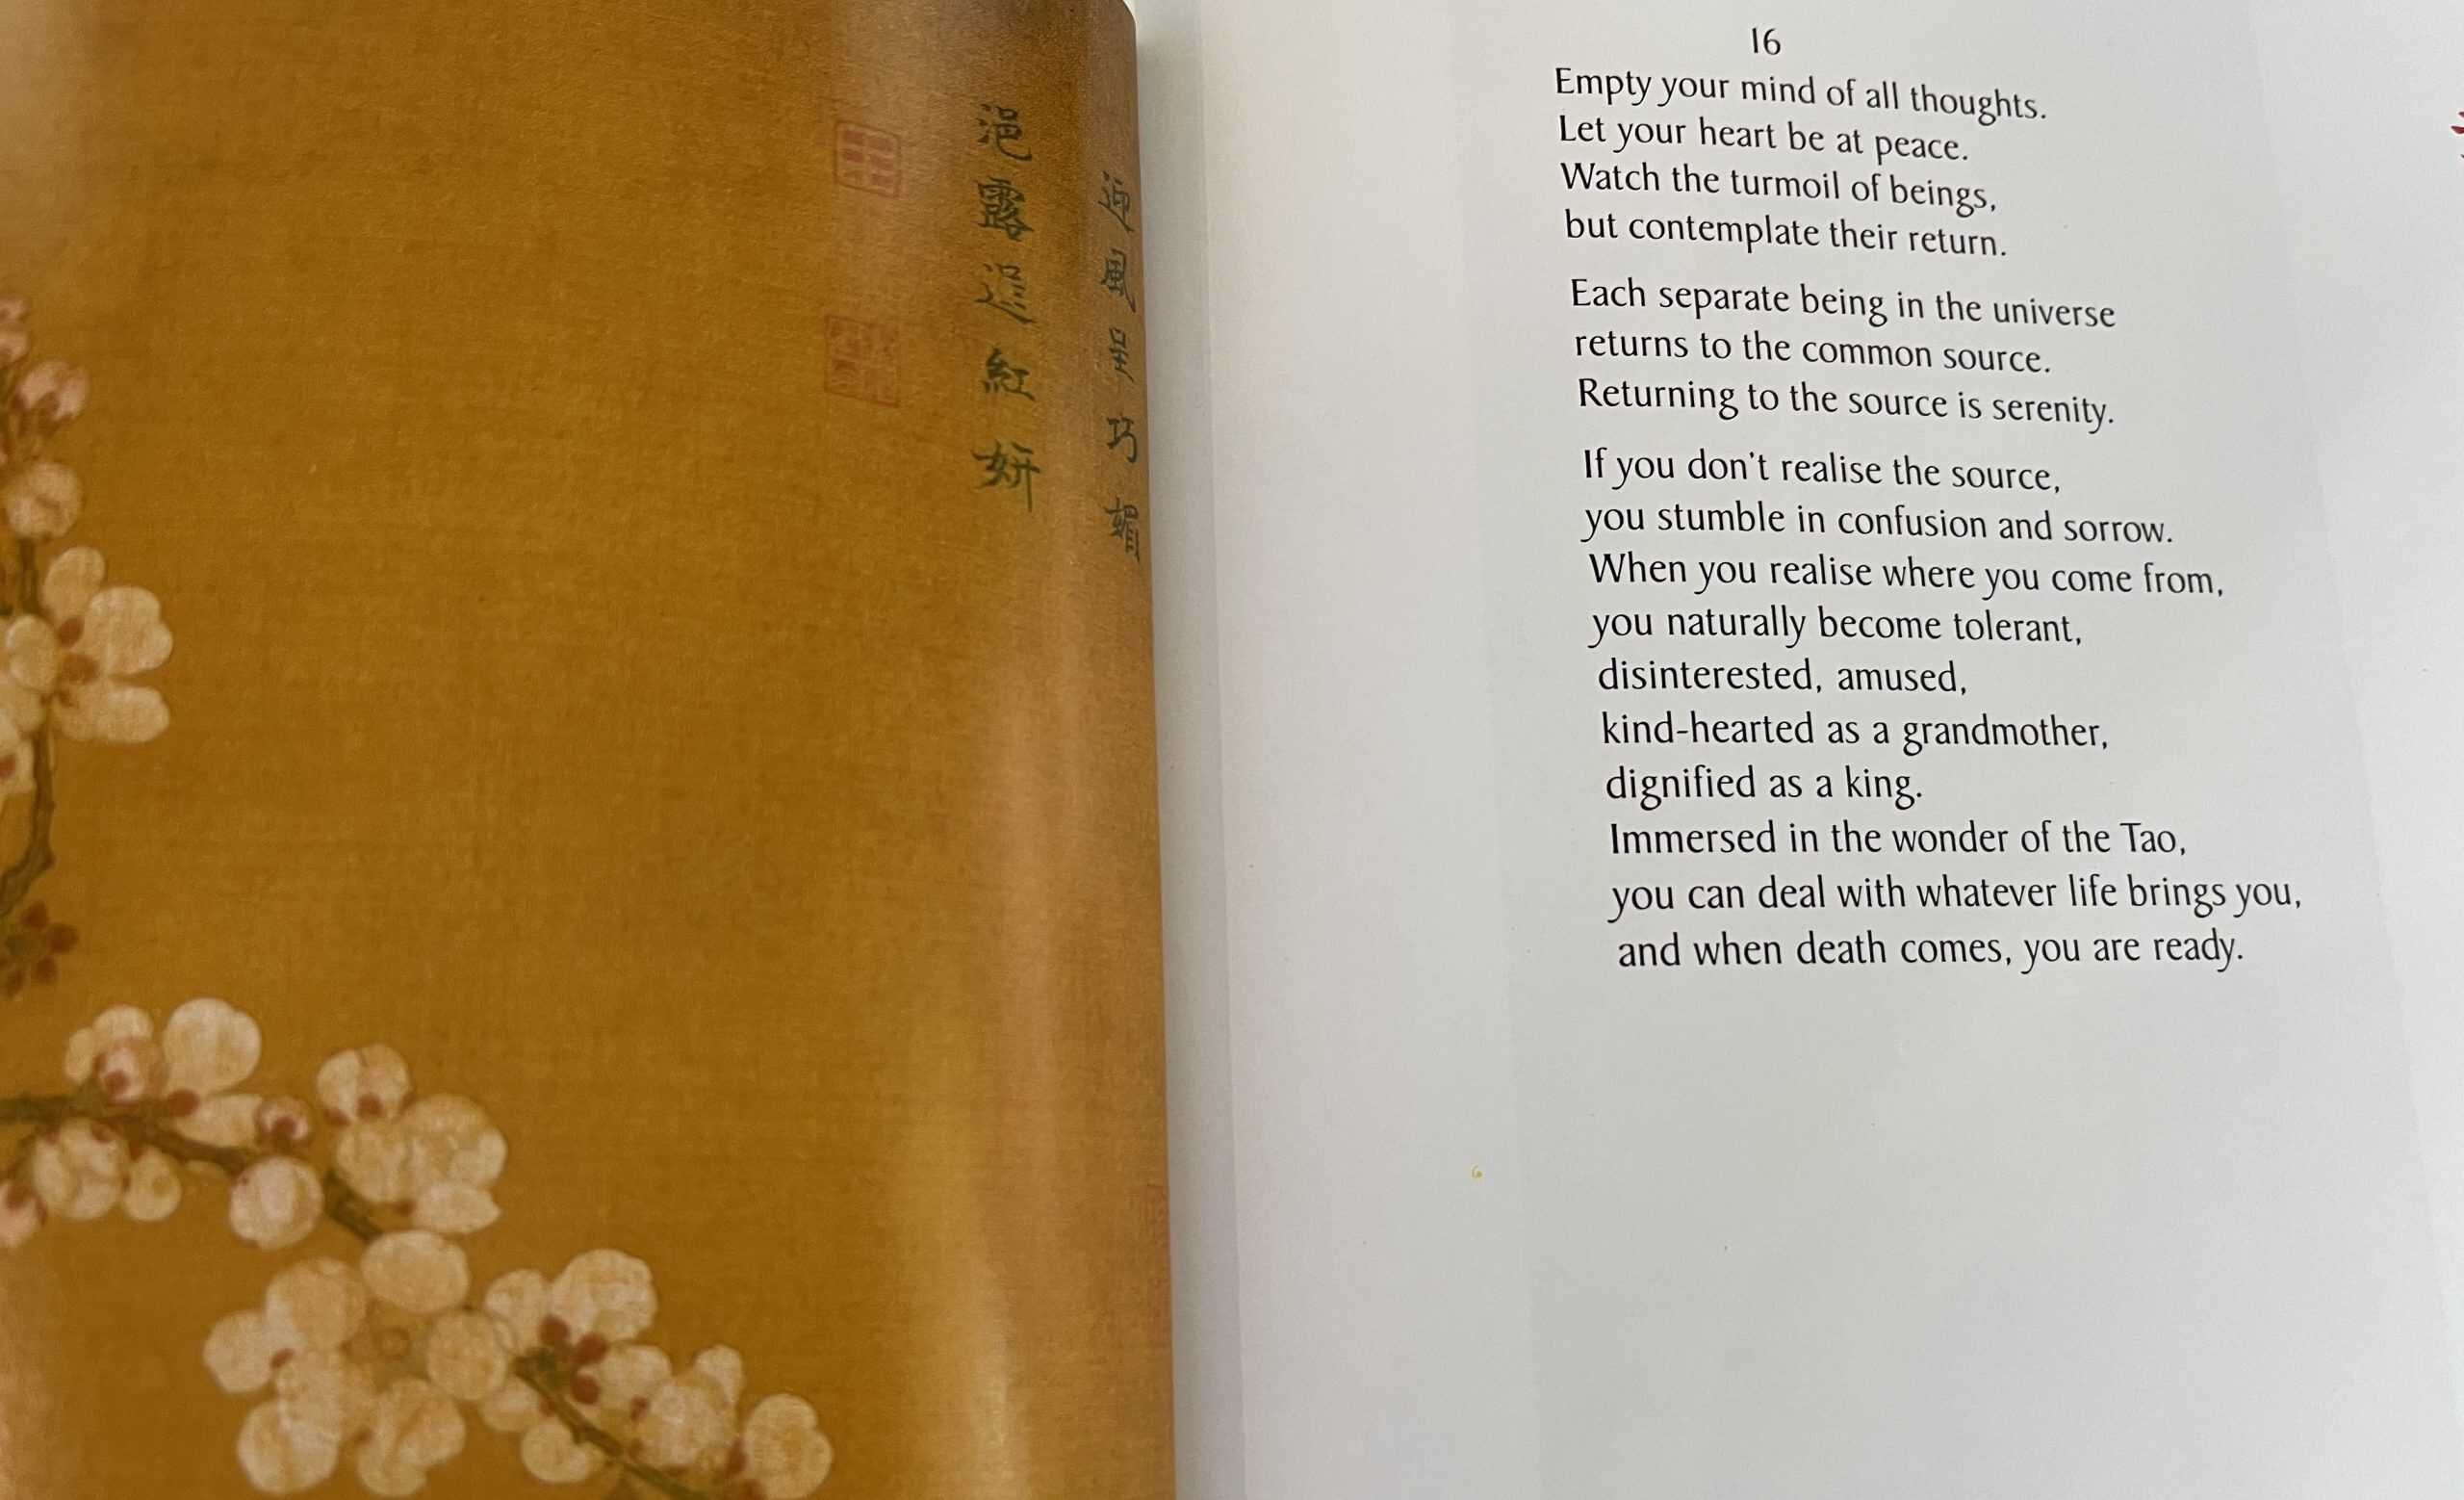 迎風呈巧媚
浥露逞紅妍
16
Empty your mind of all thoughts.
Let your heart be at peace.
Watch the turmoil of beings,
but contemplate their return.
Each separate being in the universe
returns to the common source.
Returning to the source is serenity.
If you don't realise the source,
you stumble in confusion and sorrow.
When you realise where you come from,
you naturally become tolerant,
disinterested, amused,
kind-hearted as a grandmother,
dignified as a king.
Immersed in the wonder of the Tao,
you can deal with whatever life brings you,
and when death comes, you are ready.